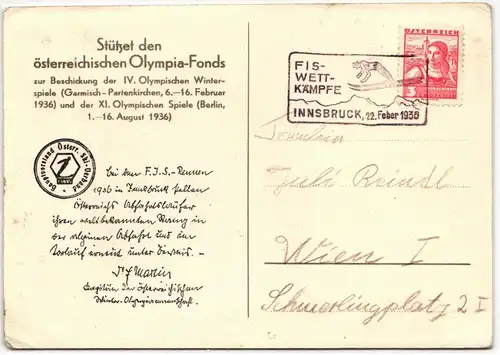 Stützet den
österreichischen Olympia-Fonds
zur Beschickung der IV. Olympischen Winter-
spiele (Garmisch-Partenkirchen, 6.—16. Februar
1936) und der XI. Olympischen Spiele (Berlin,
1.—16. August 1936)
FIS-
WETT-
KÄMPFE
INNSBRUCK, 22. Feber 1936
ÖSTERREICH
3
Hauptverband Österr. Ski-Verband
Bei den F.I.S.-Rennen
1936 in Innsbruck stellen
Österreichs Abfahrtsläufer
ihren weltbekannten Rang in
der alpinen Abfahrt und im
Torlauf erneut unter Beweis.—
Dr. J. Martin
Kapitän der Österreichischen
Winter-Olympiamannschaft.
Fräulein
Juli Reindl
Wien I
Schmerlingplatz 2 I